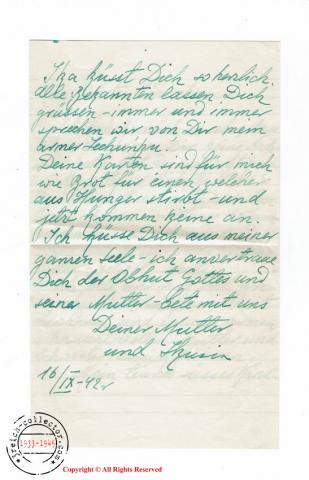 Ika küsst Dich so herzlich
alle Bekannten lassen Dich
grüssen - immer und immer
sprechen wir von Dir mein
armer
Deine Karten sind für mich
wie Brot für einen welcher
aus Hunger stirbt - und
jetzt kommen keine an.
Ich küsse Dich aus meiner
ganzen Seele - ich anvertraue
Dich der Obhut Gottes und
seiner Mutter - bete mit uns
Deiner Mutter
und
16/IX-42r
3reich-collector.com
1933-1945
Copyright © All Rights Reserved